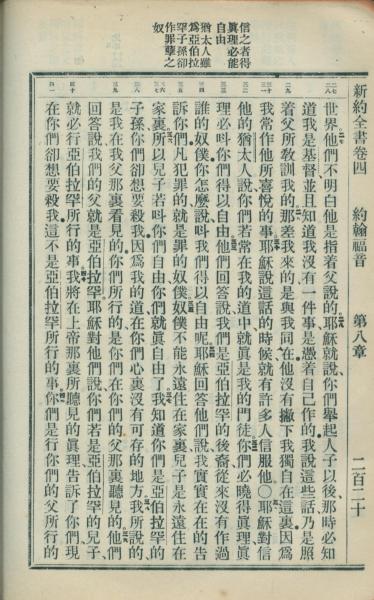 新約全書卷四　約翰福音　第八章　二百二十
信之者得
眞理必能
自由
猶太人雖
爲亞伯拉
罕子孫卻
作罪孽之
奴
世界他們不明白他是指着父說的耶穌就說你們舉起人子以後那時必知
道我是基督並且知道我沒有一件事是憑着自己作的我說這些話乃是照
着父所敎訓我的那差我來的是與我同在他沒有撇下我獨自在這裏因爲
我常作他所喜悅的事耶穌說這話的時候就有許多人信服他〇耶穌對信
他的猶太人說你們若常在我的道中就眞是我的門徒你們必曉得眞理眞
理必呌你們得以自由他們回答說我們是亞伯拉罕的後裔從來沒有作過
誰的奴僕你怎麼說呌我們得以自由呢耶穌回答他們說我實實在在的告
訴你們凡犯罪的就是罪的奴僕奴僕不能永遠住在家裏兒子是永遠住在
家裏所以兒子若呌你們自由你們就眞自由了我知道你們是亞伯拉罕的
子孫你們卻想要殺我因爲我的道在你們心裏沒有可存的地方我所說的
是我在我父那裏看見的你們所行的是你們在你們的父那裏聽見的他們
回答說我們的父就是亞伯拉罕耶穌對他們說你們若是亞伯拉罕的兒子
就必行亞伯拉罕所行的事我將在上帝那裏所聽見的眞理告訴了你們現
在你們卻想要殺我這不是亞伯拉罕所行的事你們是行你們的父所行的